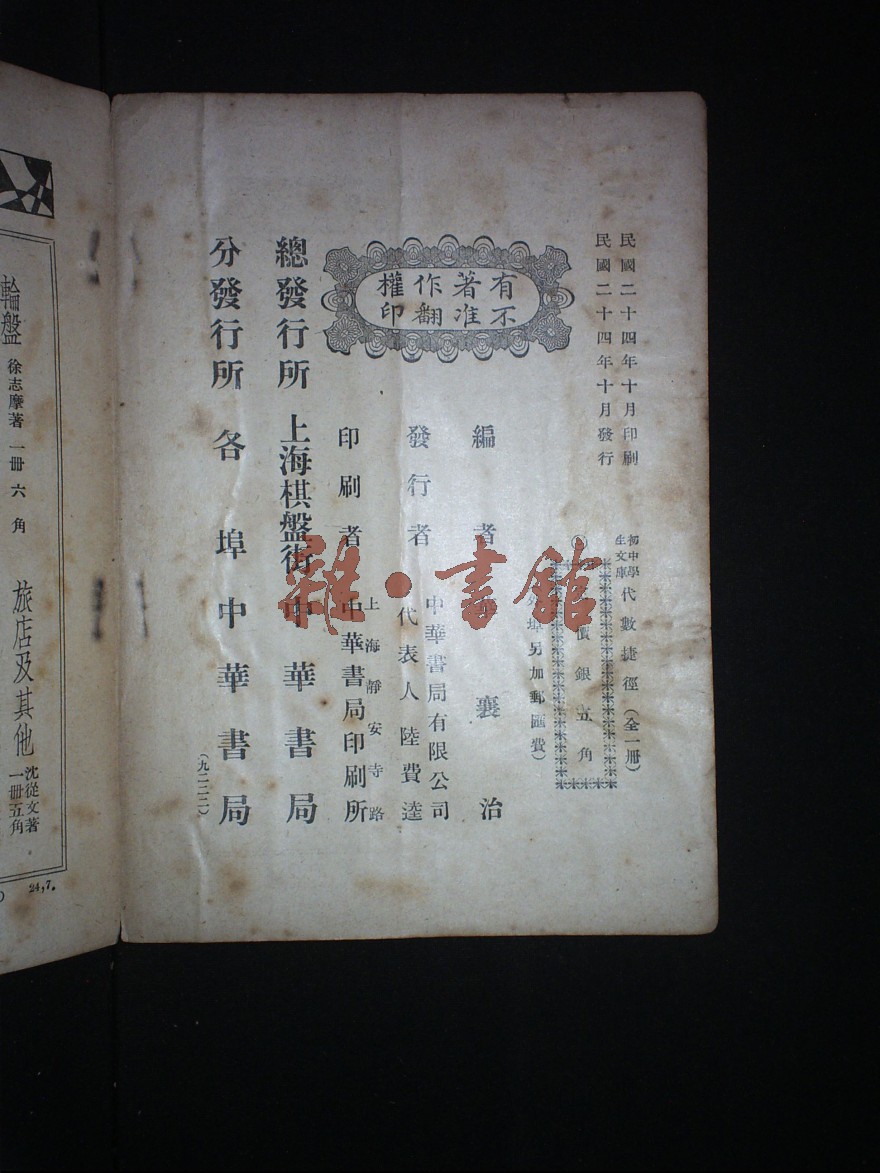 民國二十四年十月印刷
民國二十四年十月發行
初中學
生文庫
代數捷徑(全一冊)
價銀五角
埠另加郵匯費)
有著作權
不准翻印
編者 襄治
發行者 中華書局有限公司
代表人陸費逵
印刷者 上海靜安寺路
中華書局印刷所
總發行所 上海棋盤街 中華書局
分發行所 各埠中華書局
(九二二二)
雜·書館
輪盤 徐志摩著 一冊六角
旅店及其他 沈從文著
一冊五角
24,7.